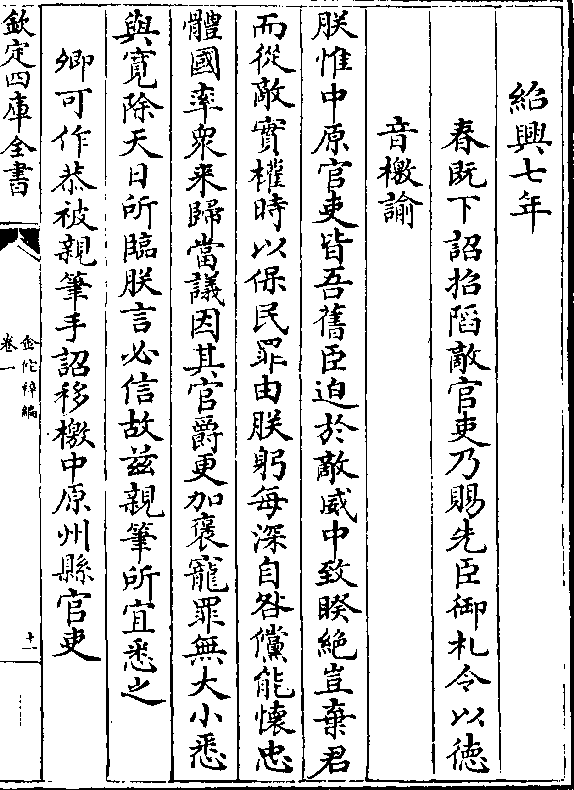 紹興七年
春既下詔招䧟敵官吏乃賜先臣御札令以徳
音檄諭
朕惟中原官吏皆吾舊臣迫於敵威中致睽絶豈棄君
而從敵實權時以保民罪由朕躬每深自咎儻能懷忠
體國率衆来歸當議因其官爵更加褒寵罪無大小悉
與寛除天日所臨朕言必信故兹親筆所宜悉之
卿可作恭被親筆手詔移檄中原州縣官吏
欽定四庫全書
金佗稡編
卷一
十一